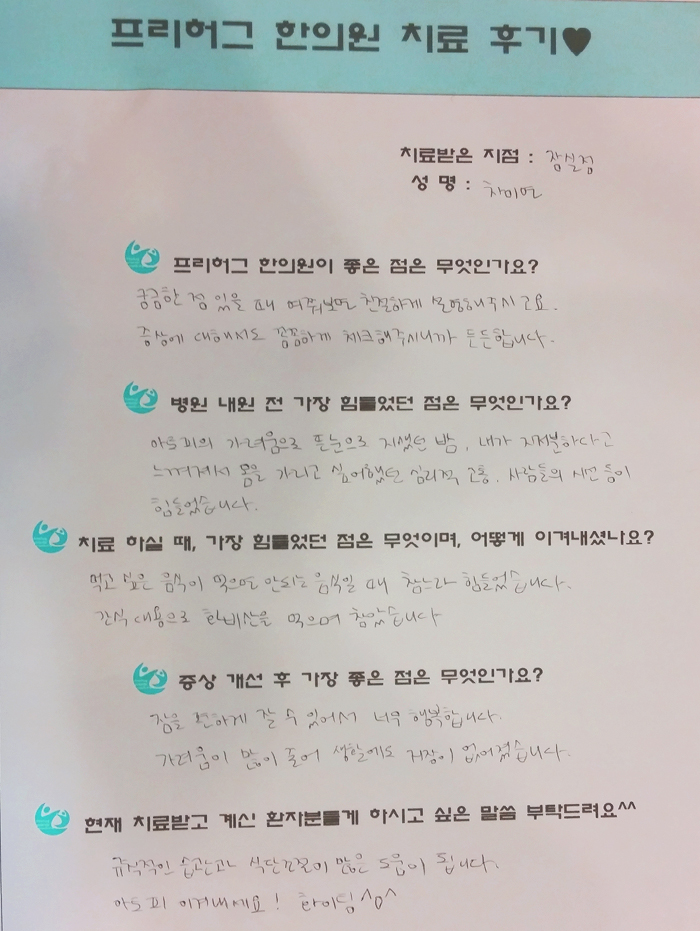 프리허그 한의원 치료 후기♥
치료받은 지점 : 잠실점
성 명 : 차미연
프리허그 한의원이 좋은 점은 무엇인가요?
궁금한 점 있을 때 여쭤보면 친절하게 설명해주시고요.
증상에 대해서도 꼼꼼하게 체크해주시니까 든든합니다.
병원 내원 전 가장 힘들었던 점은 무엇인가요?
아토피의 가려움으로 뜬눈으로 지샜던 밤, 내가 지저분하다고
느껴져서 몸을 가리고 싶어했던 심리적 고통, 사람들의 시선 등이
힘들었습니다.
치료 하실 때, 가장 힘들었던 점은 무엇이며, 어떻게 이겨내셨나요?
먹고 싶은 음식이 먹으면 안되는 음식일 때 참느라 힘들었습니다.
간식 대용으로 한비산을 먹으며 참았습니다
증상 개선 후 가장 좋은 점은 무엇인가요?
잠을 편하게 잘 수 있어서 너무 행복합니다.
가려움이 많이 줄어 생활에도 지장이 없어졌습니다.
현재 치료받고 계신 환자분들게 하시고 싶은 말씀 부탁드려요^^
규칙적인 습관과 식단조절이 많은 도움이 됩니다.
아토피 이겨내세요! 화이팅 ^o^